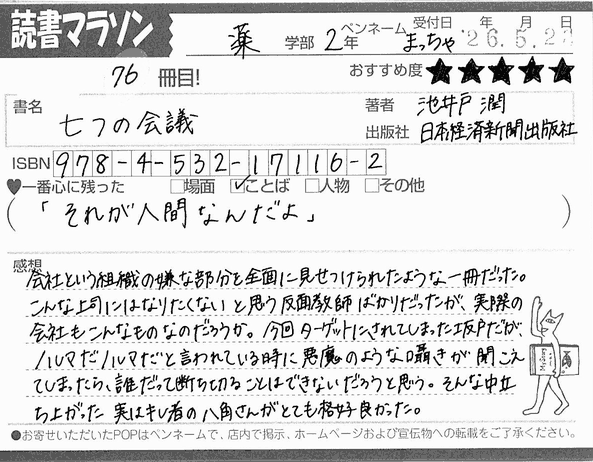 読書マラソン
薬 学部 2年 ペンネーム まっちゃ 受付日 '26.5.22 年 月 日
76 冊目! おすすめ度 ★★★★★
書名 七つの会議 著者 池井戸 潤
出版社 日本経済新聞出版社
ISBN 978-4-532-17116-2
♥一番心に残った □場面 ☑ことば □人物 □その他
(「それが人間なんだよ」)
感想
会社という組織の嫌な部分を全面に見せつけられたような一冊だった。
こんな上司にはなりたくないと思う反面教師ばかりだったが、実際の
会社もこんなものなのだろうか。今回ターゲットにされてしまった坂戸だが、
ノルマだノルマだと言われている時に悪魔のような囁きが聞こえ
てしまったら、誰だって断ち切ることはできないだろうと思う。そんな中立
ち上がった実はキレ者の八角さんがとても格好良かった。
●お寄せいただいたPOPはペンネームで、店内で掲示、ホームページおよび宣伝物への転載をご了承ください。